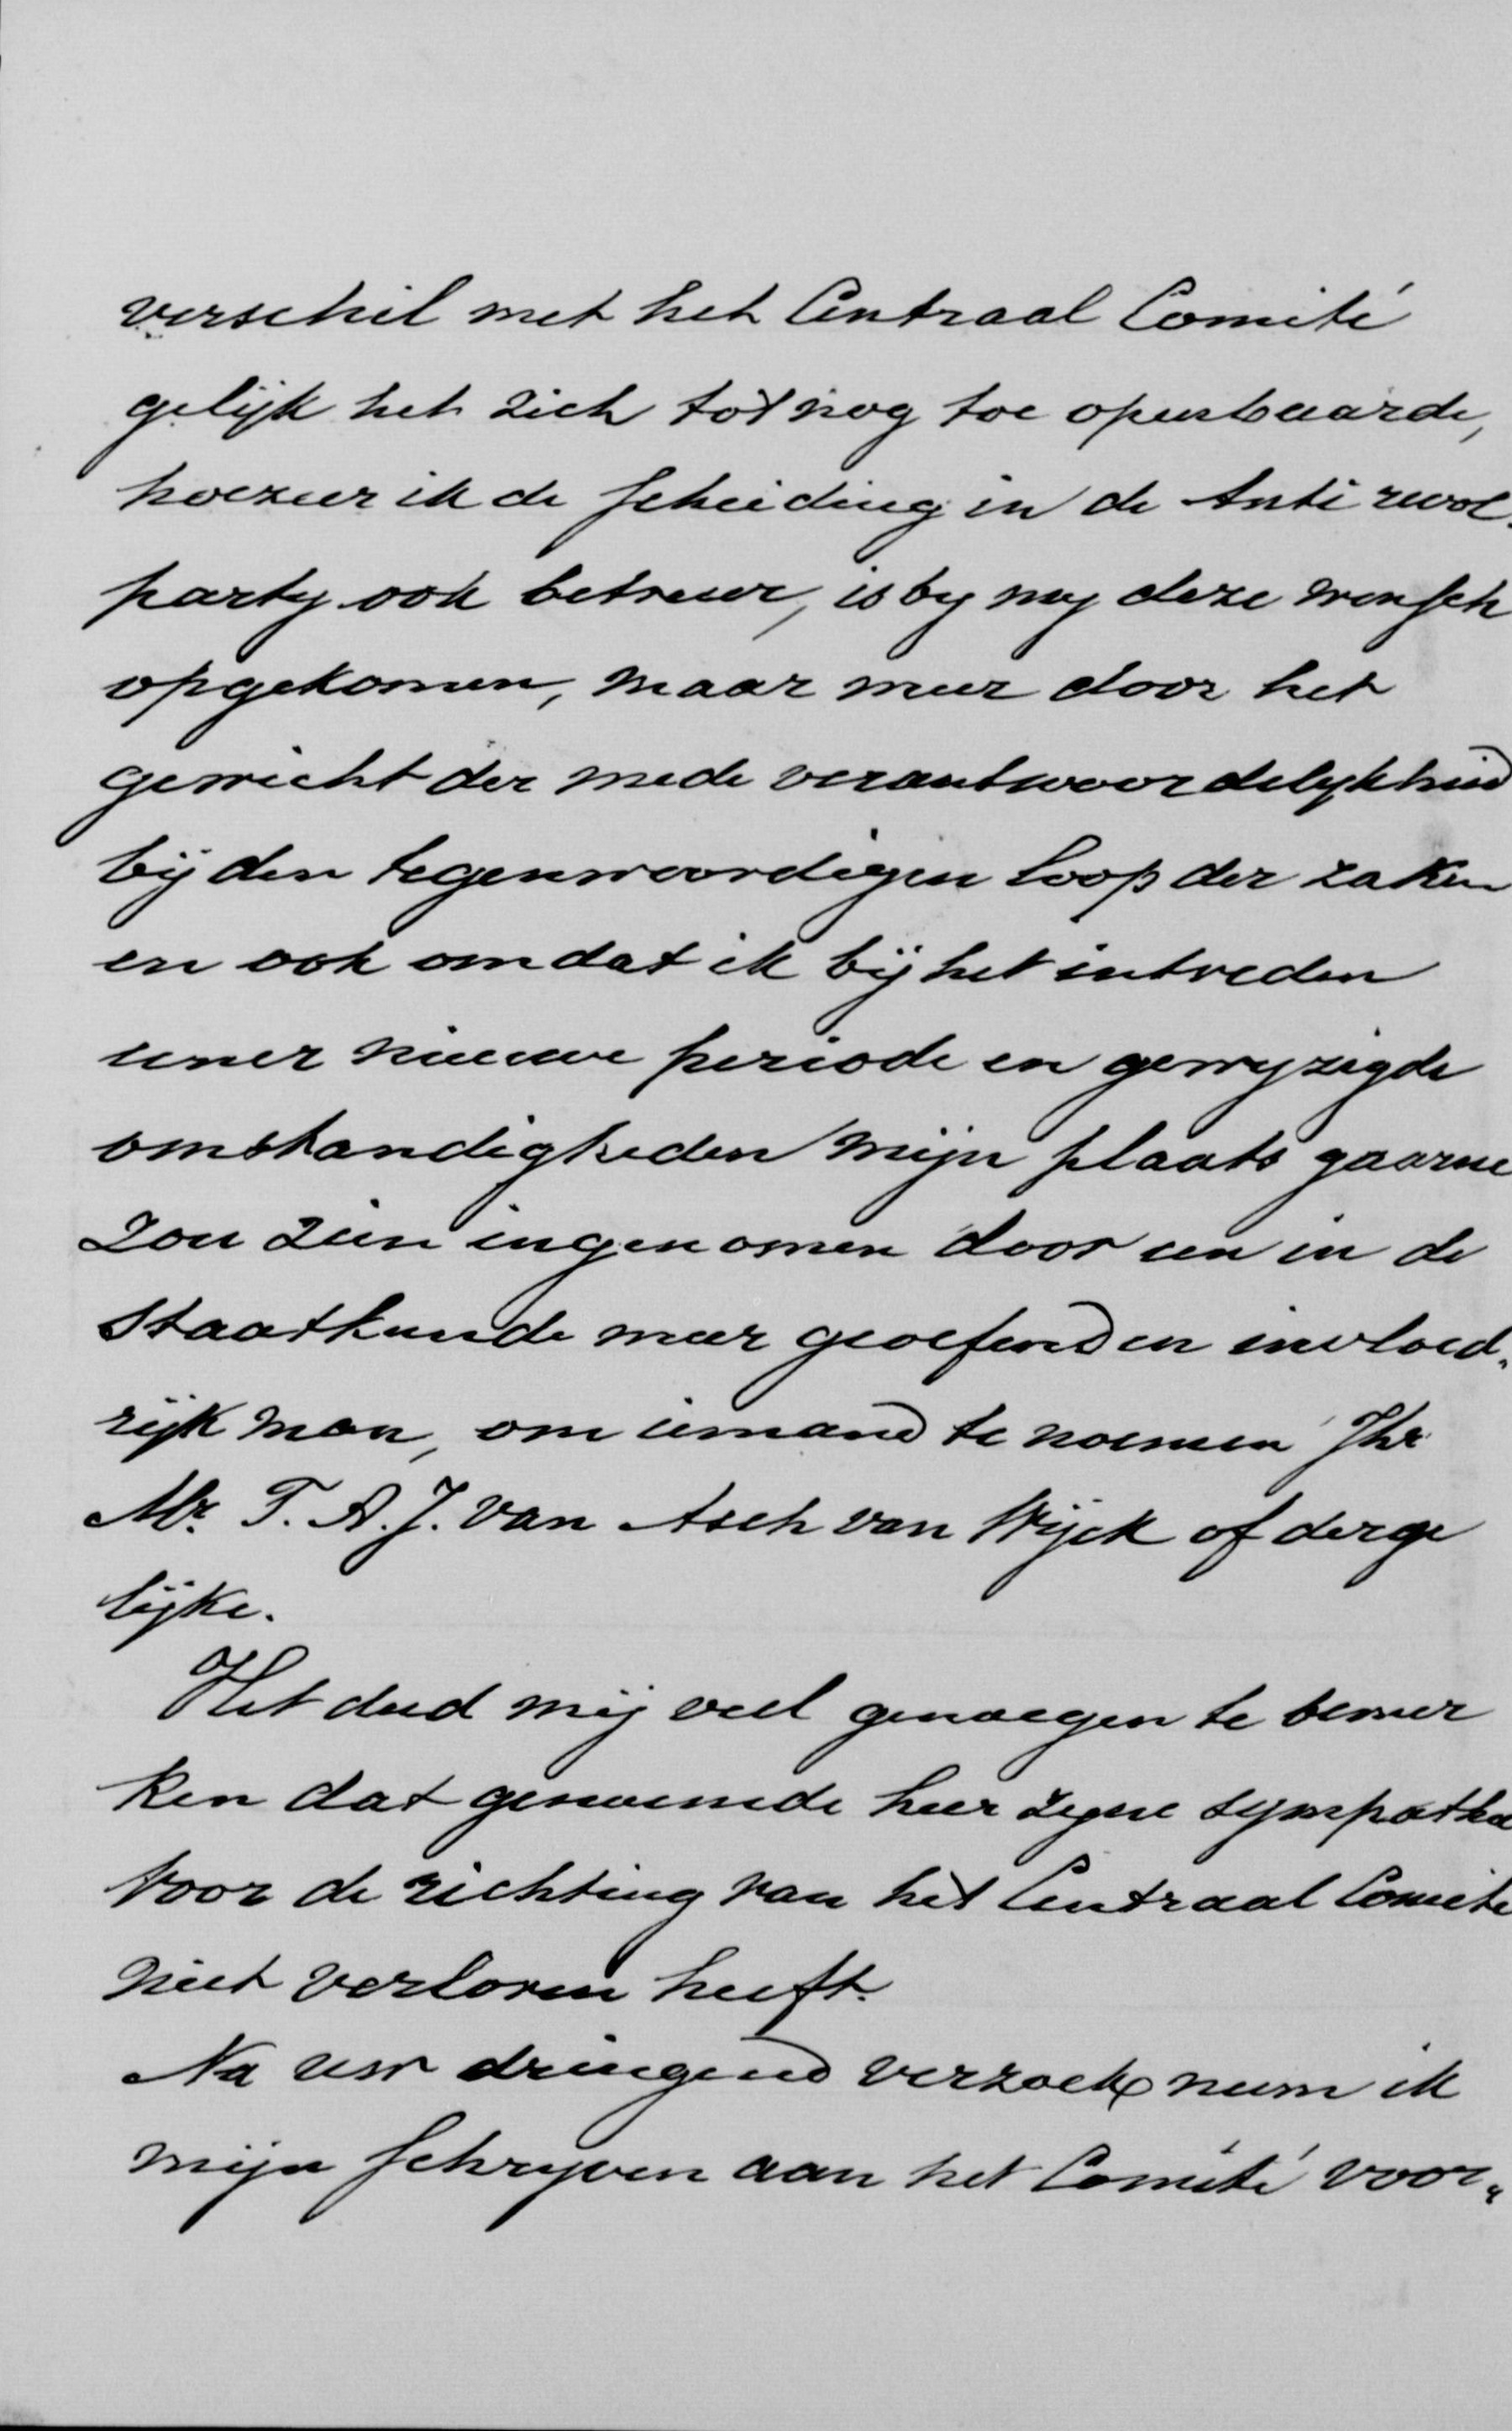 verschil met het Centraal Comité
gelijk het zich tot nog toe openbaarde,
hoezeer ik de scheiding in de Anti revol.
party ook betreur, is by my deze wensch
opgekomen, maar meer door het
gewicht der mede verantwoordelykheid
bij den tegenwoordigen loop der zaken
en ook omdat ik bij het intreden
eener nieuwe periode en gewyzigde
omstandigheden mijn plaats gaarne
zou zien ingenomen door een in de
Staatkunde meer geoefend en invloed„
rijk man, om iemand te noemen Jhr
Mr. T. A. J. van Asch van Wijck of derge
lijke.
Het deed mij veel genoegen te bemer
ken dat genoemde heer zyne sympathie
voor de richting van het Centraal Comité
niet verloren heeft.
Na uw dringend verzoek neem ik
mijn schryven aan het Comité voor„